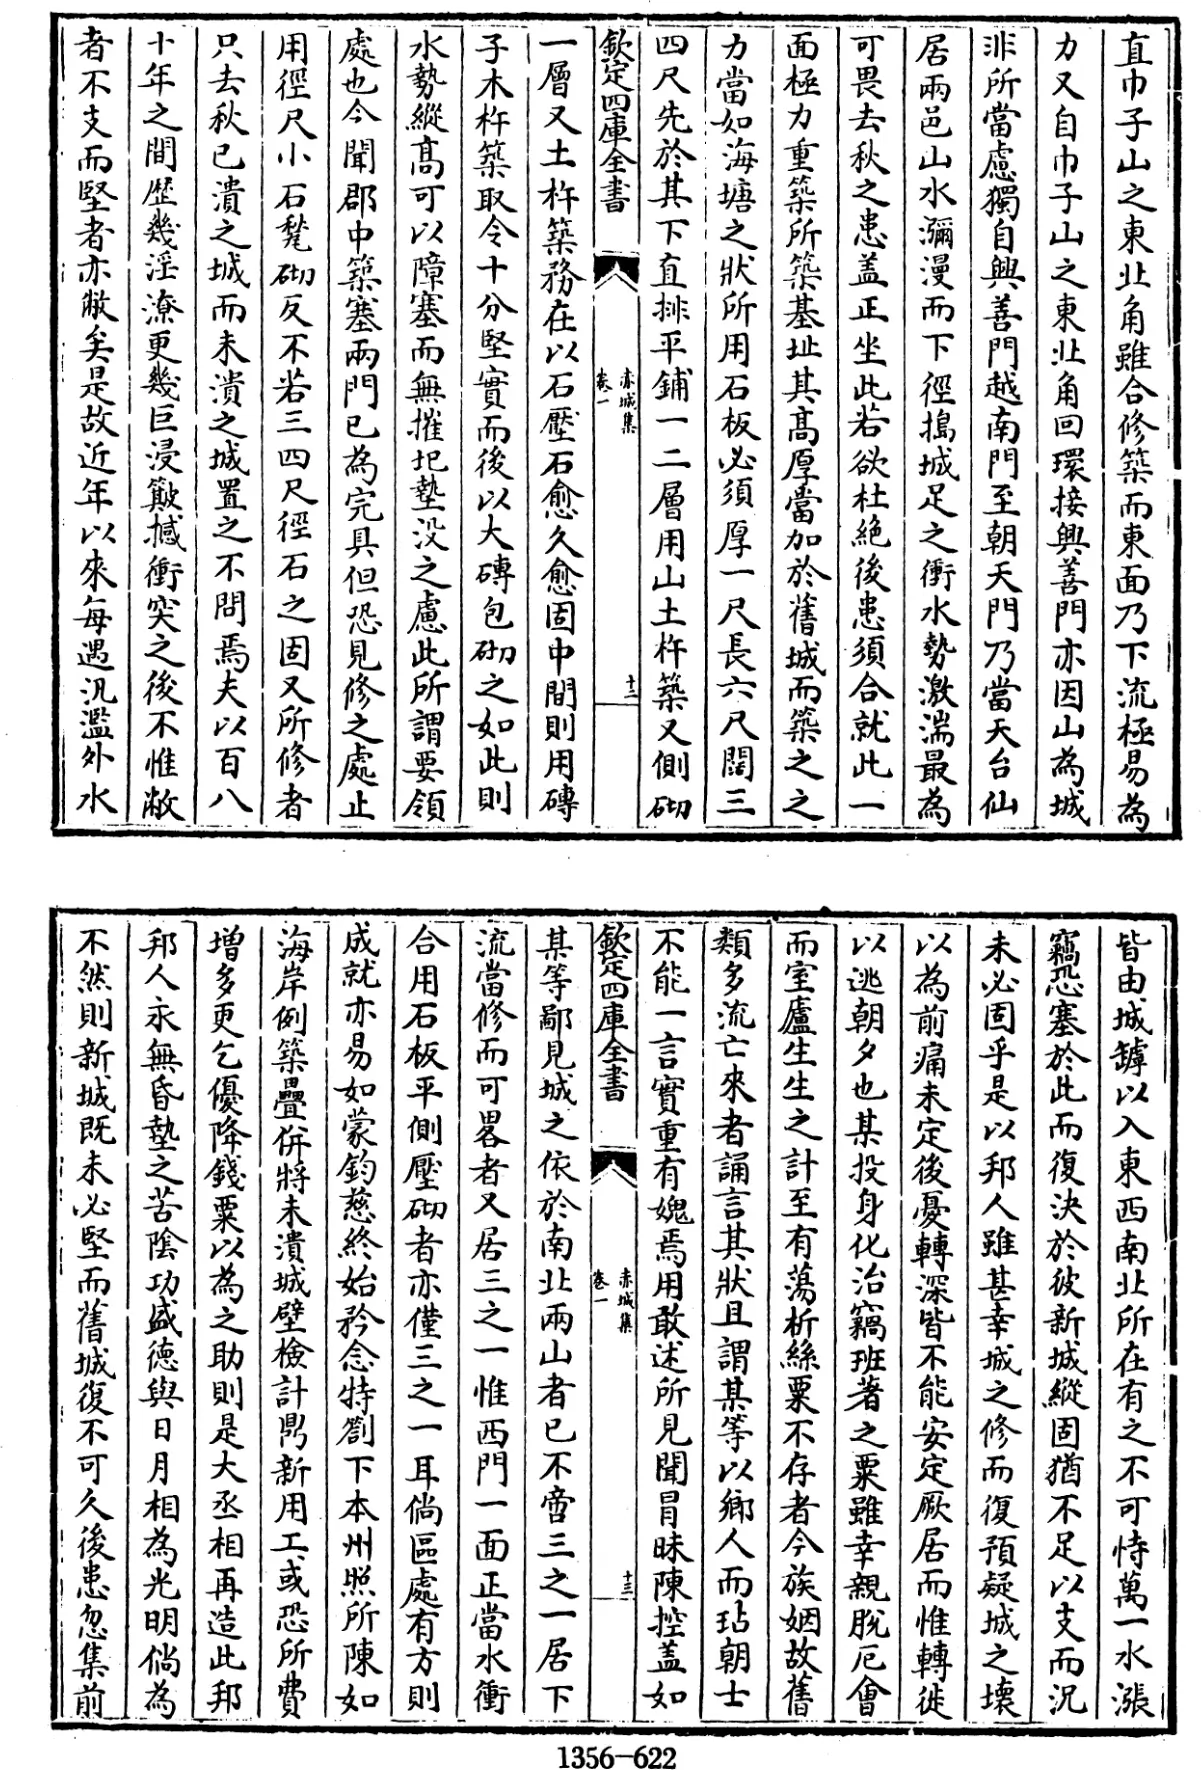 直巾子山之東北角雖合修築而東面乃下流極易為
力又自巾子山之東北角回環接興善門亦因山為城
非所當慮獨自興善門越南門至朝天門乃當天台仙
居兩邑山水瀰漫而下徑搗城足之衝水勢激湍最為
可畏去秋之患盖正坐此若欲杜絶後患須合就此一
面極力重築所築基址其髙厚當加於舊城而築之之
力當如海塘之狀所用石板必須厚一尺長六尺闊三
四尺先於其下直排平鋪一二層用山土杵築又側砌
欽定四庫全書
赤城集
卷一
十二
一層又土杵築務在以石壓石愈久愈固中間則用磚
子木杵築取令十分堅實而後以大磚包砌之如此則
水勢縱髙可以障塞而無摧圮墊没之慮此所謂要領
處也今聞郡中築塞兩門已為完具但恐見修之處止
用徑尺小石甃砌反不若三四尺徑石之固又所修者
只去秋已潰之城而未潰之城置之不問焉夫以百八
十年之間歴幾淫潦更幾巨浸簸撼衝突之後不惟敝
者不支而堅者亦敝矣是故近年以來每遇汎濫外水
皆由城罅以入東西南北所在有之不可恃萬一水漲
竊恐塞於此而復決於彼新城縱固猶不足以支而況
未必固乎是以邦人雖甚幸城之修而復預疑城之壊
以為前痛未定後憂轉深皆不能安定厥居而惟轉徙
以逃朝夕也某投身化治竊班著之粟雖幸親脫厄會
而室廬生生之計至有蕩析絲粟不存者今族姻故舊
類多流亡來者誦言其狀且謂某等以鄉人而玷朝士
不能一言實重有媿焉用敢述所見聞冒昧陳控盖如
欽定四庫全書
赤城集
卷一
十三
某等鄙見城之依於南北兩山者已不啻三之一居下
流當修而可畧者又居三之一惟西門一面正當水衝
合用石板平側壓砌者亦僅三之一耳倘區處有方則
成就亦易如蒙鈞慈終始矜念特劄下本州照所陳如
海岸例築疊併將未潰城壁檢計鼎新用工或恐所費
増多更乞優降錢粟以為之助則是大丞相再造此邦
邦人永無昏墊之苦陰功盛德與日月相為光明倘為
不然則新城既未必堅而舊城復不可久後患忽集前
1356-622